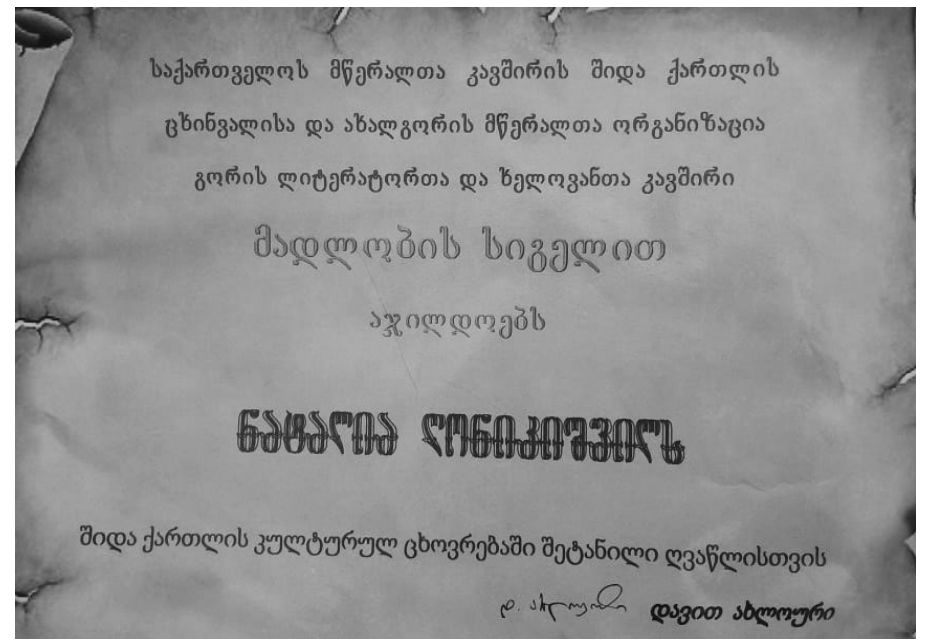 საქართველოს მწერალთა კავშირის შიდა ქართლის
ცხინვალისა და ახალგორის მწერალთა ორგანიზაცია
გორის ლიტერატორთა და ხელოვანთა კავშირი
მადლობის სიგელით
აჯილდოებს
ნატალია ლონიკიშვილს
შიდა ქართლის კულტურულ ცხოვრებაში შეტანილი ღვაწლისთვის
დ. ახლოური დავით ახლოური